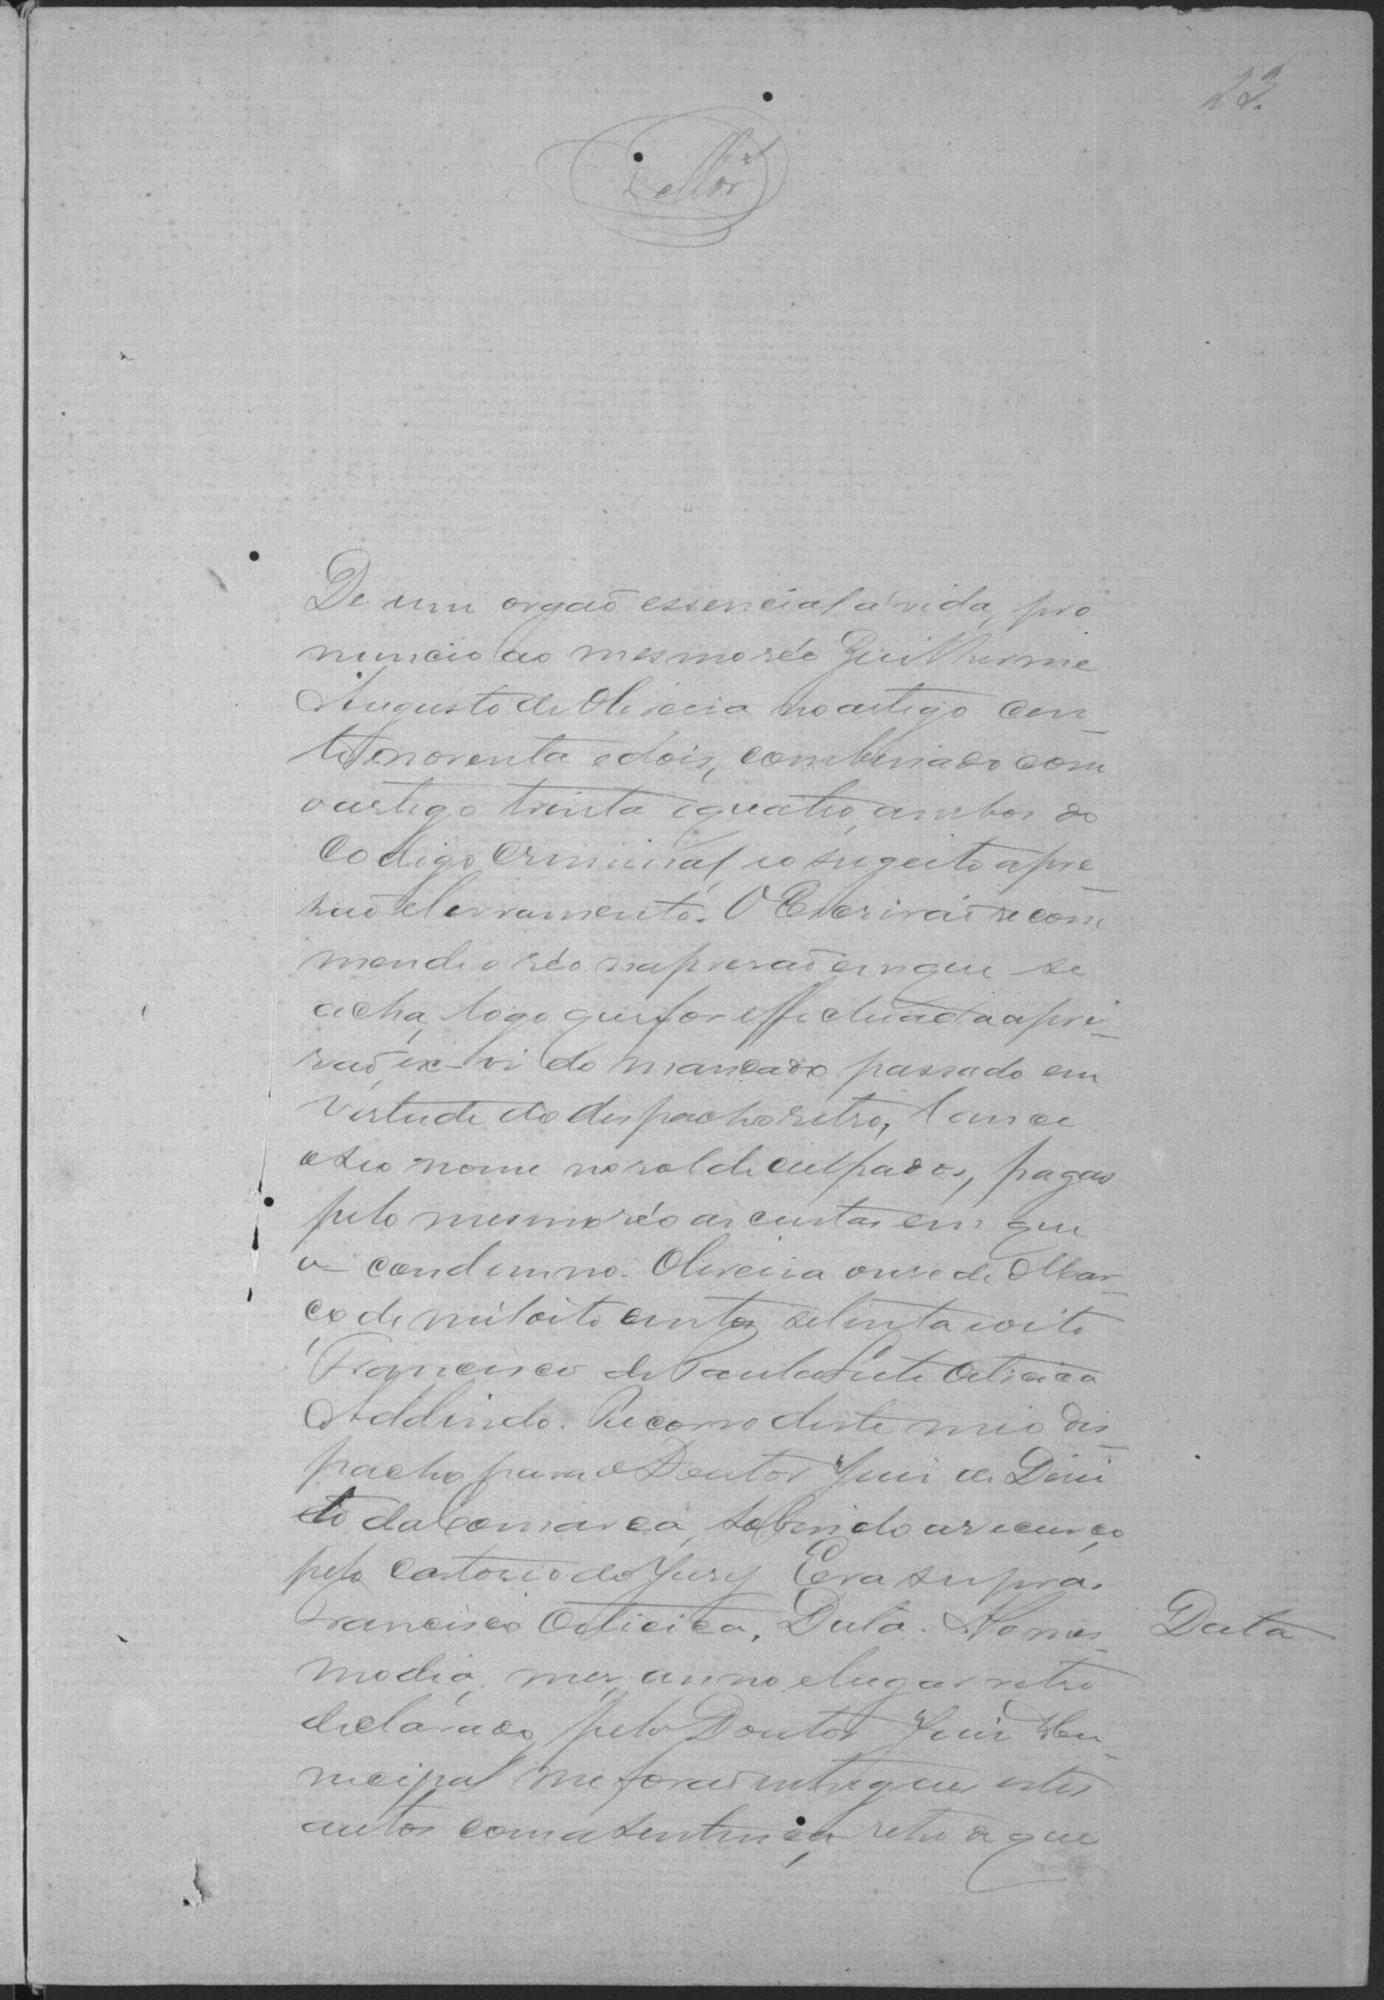 23.
De um orgaõ essencial á vida, pro
nuncio ao mesmo réo Guilherme
Augusto de Oliveira no artigo cen
to e noventa e dois, combinado com
o artigo trinta e quatro, ambos do
Codigo Criminal, e o sugeito a pre
saõ e livramento. O Escrivaõ recom
mende o réo na presaõ em que se
acha, logo que for effectuada a pri
saõ, ex-vi do mandado passado em
virtude do dispacho retro, lance
o seo nome no rol de culpados, pagas
pelo mesmo réo as custas em que
o condemno. Oliveira onze de Mar
ço de mil oito centos setenta e oito
Francisco de Paula Leite Oiticica
Addindo. Recorro deste meio dis
pacho para o Doutor Juiz de Direi
to da Comarca, subindo o recurço
pelo Cartorio do Jury Era supra.
Francisco Oiticica. Data. No mes
Data
mo dia, mez, anno e lugar retro
declarado, pelo Doutor Juiz Mu
nicipal me foraõ entregues estes
autos com a sentença retro a que